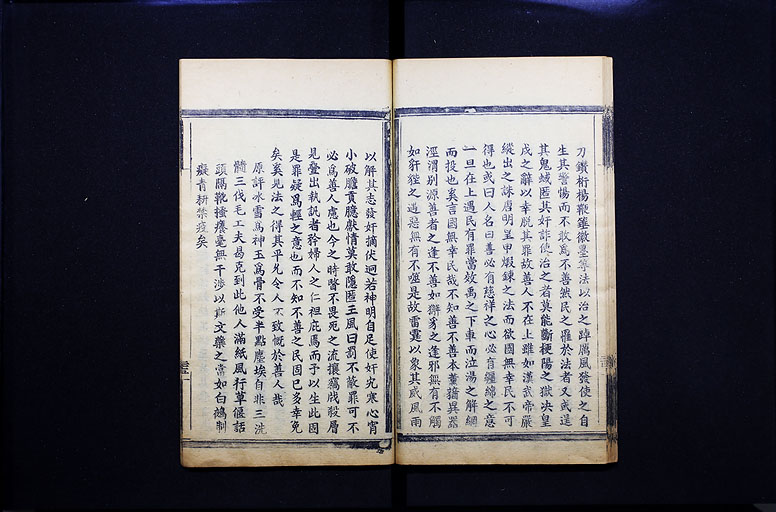 刀鑽桁楊鞭箠徽墨等法以治之踔厲風發使之自
生其警惕而不敢為不善然民之罹於法者又或逞
其鬼蜮匿其奸詐使治之者莫能斷梗陽之獄決皇
戌之辭以幸脫其罪故善人不在上雖如漢武帝嚴
縱出之誅唐明皇申煆鍊之法而欲國無幸民不可
得也或曰人名曰善必有慈祥之心必有纏綿之意
一旦在上遇民有罪當效禹之下車而泣湯之解網
而投也奚言國無幸民哉不知善不善本董蕕異器
涇渭別源善者之逢不善如獬豸之逢邪無有不觸
如豻狴之遇惡無有不噬是故雷霆以象其威風雨
以解其志發奸摘伏迥若神明自足使奸宄寒心宵
小破膽貢臆獻情莫敢隱匿王風曰罰不敵罪可不
必為善人慮也今之時瞥不畏死之流攘竊戕殺層
見疊出執訊者矜婦人之仁袒庇焉而予以生此固
是罪疑爲輕之意也而不知不善之民固已多幸免
矣奚見法之得其平允令人不致慨於善人哉
原評冰雪爲神玉爲骨不受半點塵埃自非三洗
髓三伐毛工夫曷克到此他人滿紙風行草偃話
頭隔靴搔癢毫無干涉以斯文藥之當如白鴿制
癡青耕禁疫矣